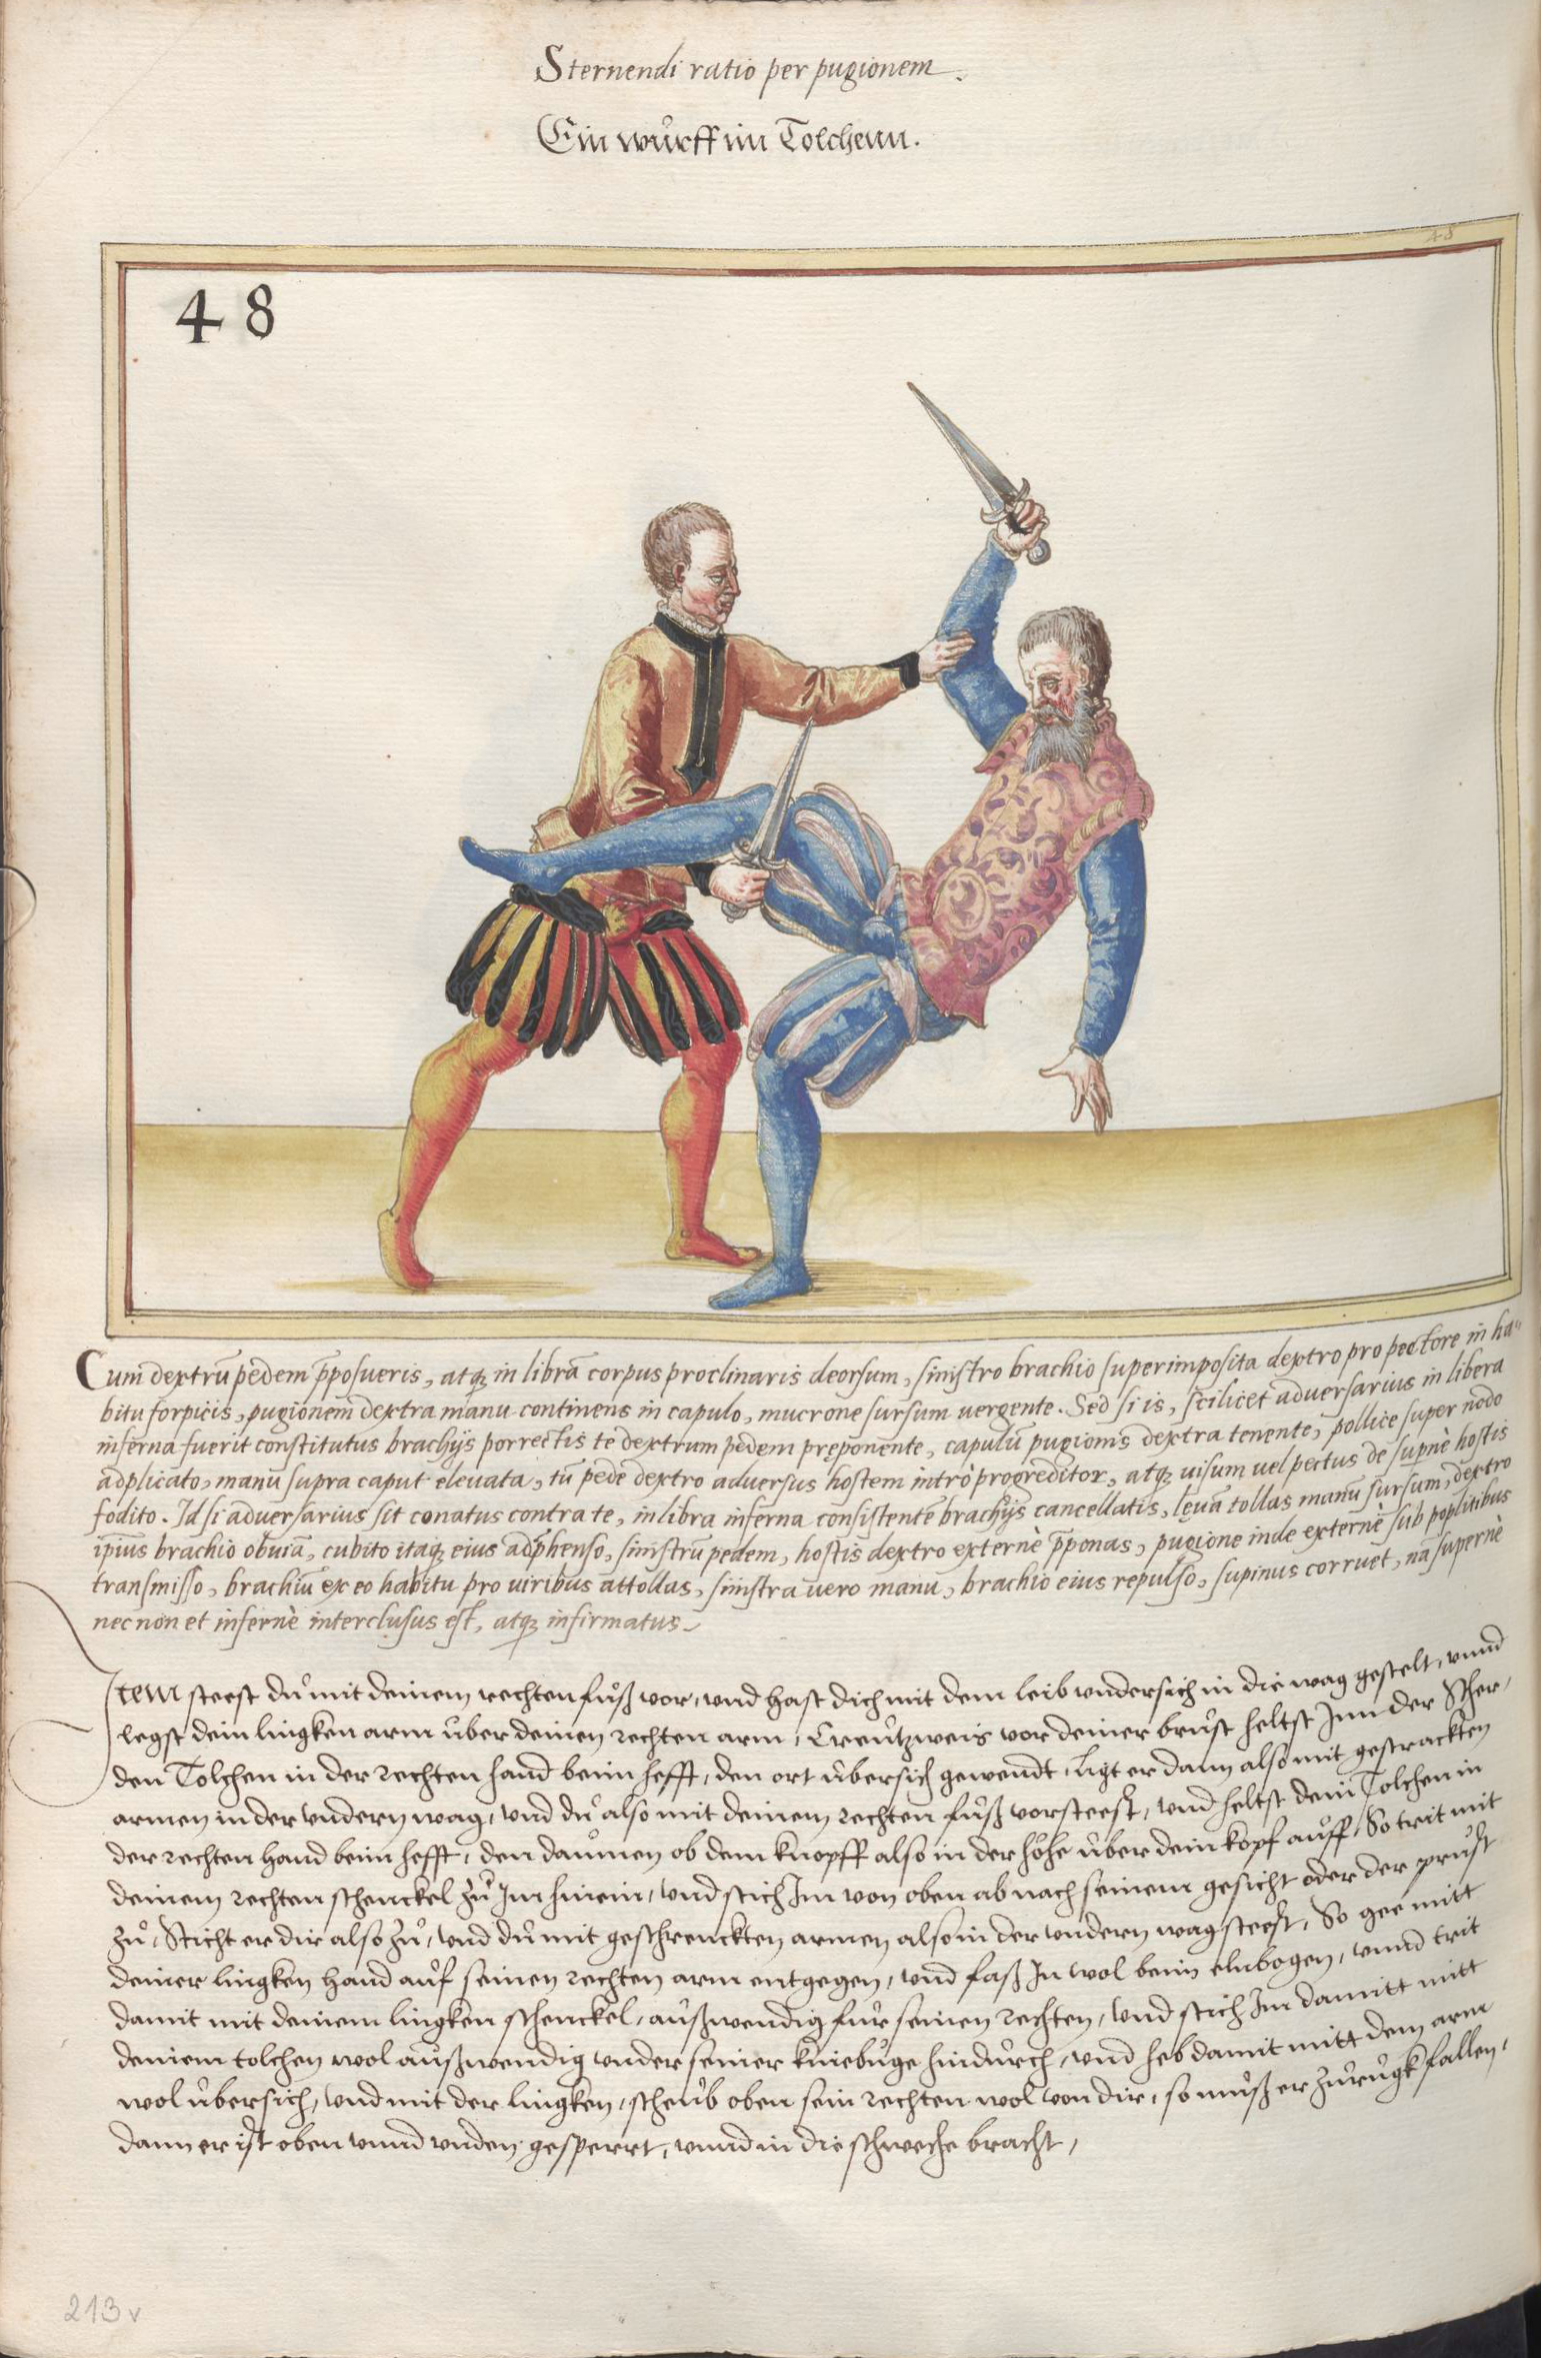 Sternendi ratio per pugionem.
Ein wůrff im Tolchenn.
48
48
Cum dextrũ pedem p̃posueris, atq; in librã corpus proclinaris deorsum, sinistro brachio superimposita dextro pro pectore in ha-
bitu forpicis, pugionem dextra manu continens in capulo, mucrone sursum uergente. Sed si is, scilicet aduersarius in libera
inferna fuerit constitutus brachijs porrectis te dextrum pedem pręponente, capulũ pugionis dextra tenente, pollice super nodo
adplicato, manu supra caput eleuata, tũ pede dextro aduersus hostem intrò progreditor, atq; uisum uel pectus de supernè hostis
fodito. Id si aduersarius sit conatus contra te, in libra inferna consistentẽ brachijs cancellatis, leuã tollas manũ sursum, dextro
ipsius brachio obuiã, cubito itaq; eius adp̃henso, sinistrũ pedem, hostis dextro externè p̃ponas, pugione inde externè sub poplitibus
transmisso, brachiũ ex eo habitu pro uiribus attollas, sinistra uero manu, brachio eius repulso, supinus corruet, nã supernè
nec non et infernè interclusus est, atq; infirmatus.
Item steest dů mit deinem rechten fůß vor, vnd hast dich mit dem leib vndersich in die wag gestelt, vnnd
legst dein lingken arm über deinen rechten arm, Creůtzweis vor deiner brůst heltst Inn der Scher,
den Tolchen in der rechten hand beim hefft, den ort übersich gewendt, ligt er dann also mit gestrackten
armen in der vndern wag, vnd dů also mit deinem rechten fůß vorsteest, vnd heltst dein Tolchen in
der rechten hand beim hefft, den daůmen ob dem knopff also in der höhe über dein kopf aůff, So trit mit
deinem rechten schenckel zů Im hinein, vnd stich Im von oben ab nach seinem gesicht oder der průst
zů, Sticht er dir also zů, vnd dů mit geschrenckten armen also in der vndern wag steest, So gee mitt
deiner lingken hand aůf seinen rechten arm entgegen, vnd faß In wol beim elnbogen, vnnd trit
damit mit deinem lingken schenckel, aůßwendig für seinen rechten, vnd stich Im damitt mitt
deinem tolchen wol aůßwendig vnder seiner kniebůge hindůrch, vnd heb damit mitt dem arm
wol übersich, vnd mit der lingken, scheůb oben sein rechten wol von dir, so můß er zůrůgk fallen,
dann er ist oben vnnd vnden gesperrt, vnnd in die schweche bracht,
213v